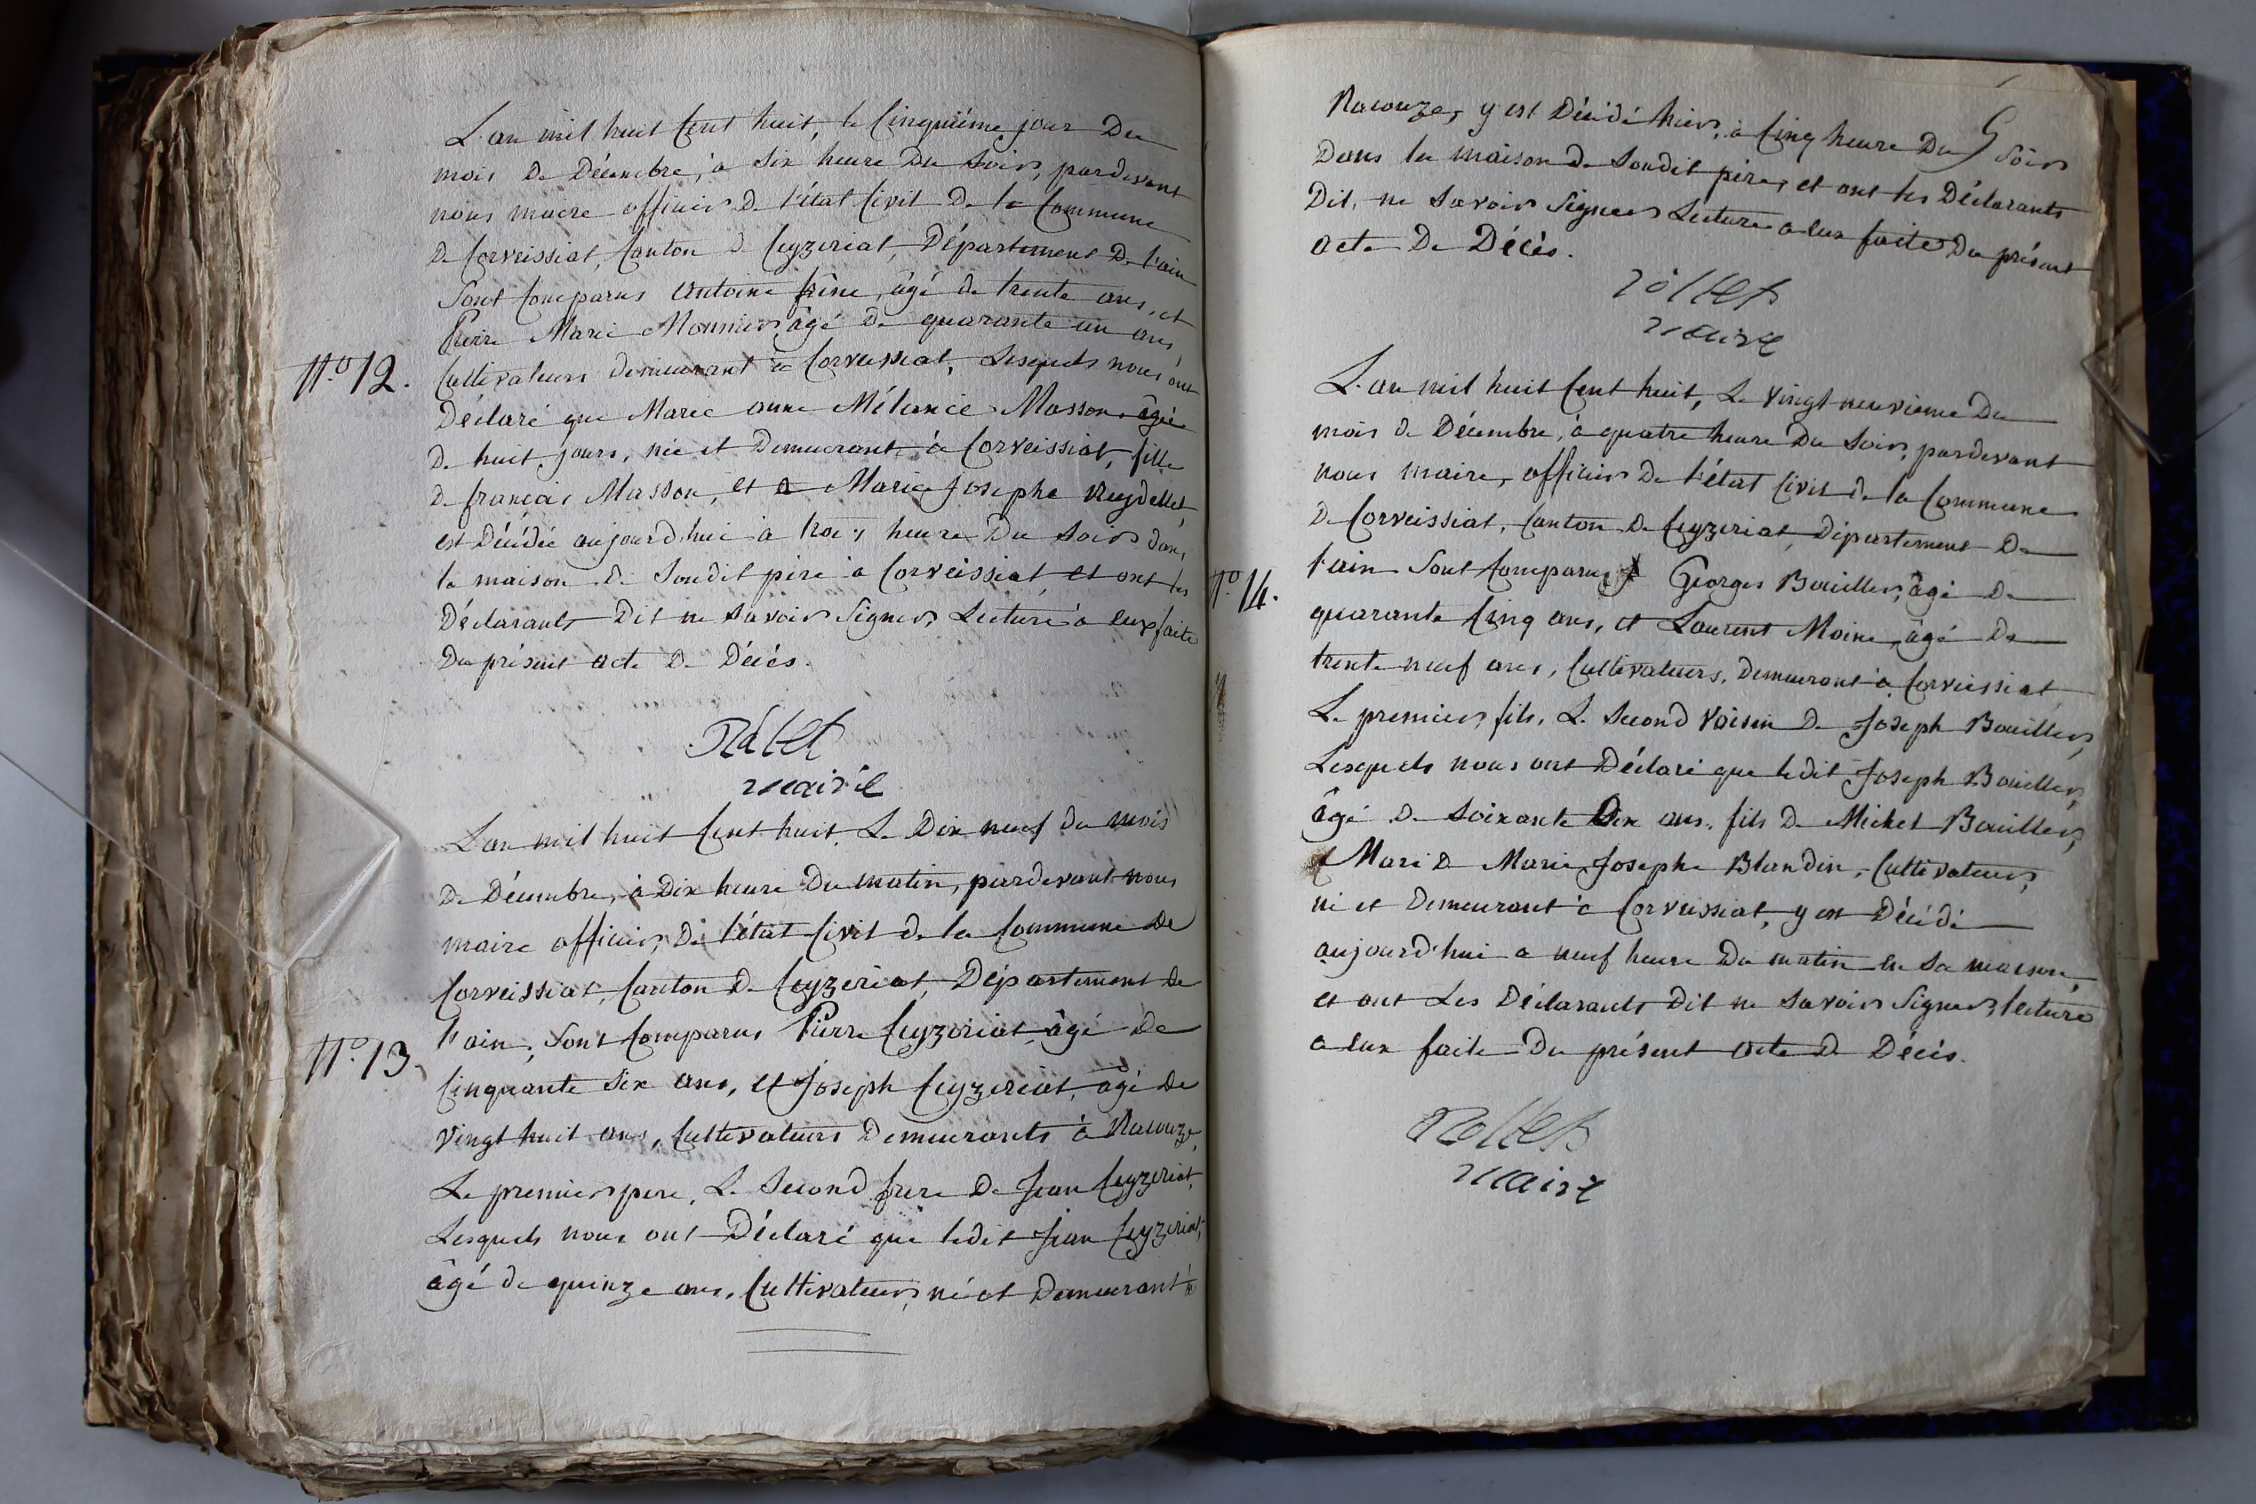 L'an mil huit Cent huit, le Cinquiéme jour Du
mois De Décembre, à Six heure Du Soir, pardevant
nous maire officier De l'état Civil De la Commune
De Corveissiat, Canton de Ceyzeriat, Département De l'ain
Sont Comparus Antoine frène, âgé de trente ans, et
Pierre Marie Monnier âgé De quarante un ans,
N.o 12.
Cultivateurs demeurant à Corveissiat, Lesquels nous ont
Déclaré que Marie anne Mélanie Masson, âgée
De huit jours, née et Demeurante à Corveissiat, fille
De français Masson, et De Marie Josephe Reydellet,
est Décédée aujourd'hui à trois heure Du Soir dans
la maison de Soudit pére à Corveissiat et ont les
Déclarants Dit ne Savoir Signer Lecture à eux faite
Du présent acte De Décès.
Rollet
maire
L'an mil huit Cent huit, Le Dix neuf du mois
De Décembre, à Dix heure Du matin, pardevant nous
maire officier De l'état Civil De la Commune De
Corveissiat, Canton De Ceyzeriat, Département De
l'ain, Sont Comparus Pierre Ceyzeriat, âgé De
N.o 13.
Cinquante Six ans, et Joseph Ceyzeriat, âgé De
Vingt huit ans, Cultivateurs Demeurants à Racouze,
Le premier pere, Le Second frere De Jean Ceyzeriat,
Lesquels nous ont Déclaré que ledit Jean Ceyzeriat,
âgé de quinze ans, Cultivateur, né et Demeurant à
5
Racouze, y est Décédé hier, à Cinq heure Du Soir
Dans la maison De Soudit pére, et ont les Déclarants
Dit, ne Savoir Signer Lecture a eux faite Du présent
acte De Décès.
rollet
maire
L'an mil huit Cent huit, Le Vingt neuvieme Du
mois de Décembre, à quatre heure Du Soir, pardevant
nous maire, officier De l'état Civil de la Commune
De Corveissiat, Canton De Ceyzeriat, Département De
N.o 14.
l'ain Sont Comparus Georges Bouiller, âgé De
quarante Cinq ans, et Laurent Moine, âgé De
trente neuf ans, Cultivateurs, Demeurant à Corveissiat
Le premier fils, Le Second Voisin De Joseph Bouiller,
Lesquels nous ont Déclaré que ledit Joseph Bouiller,
âgé De Soixante Dix ans, fils De Michel Bouiller,
Mari De Marie Josephe Blandin, Cultivateur,
né et Demeurant à Corveissiat, y est Décédé
aujourd'hui a neuf heure Du matin en Sa maison,
et ont Les Déclarants Dit ne Savoir Signer, lecture
a eux faite Du présent acte De Décès.
Rollet
maire